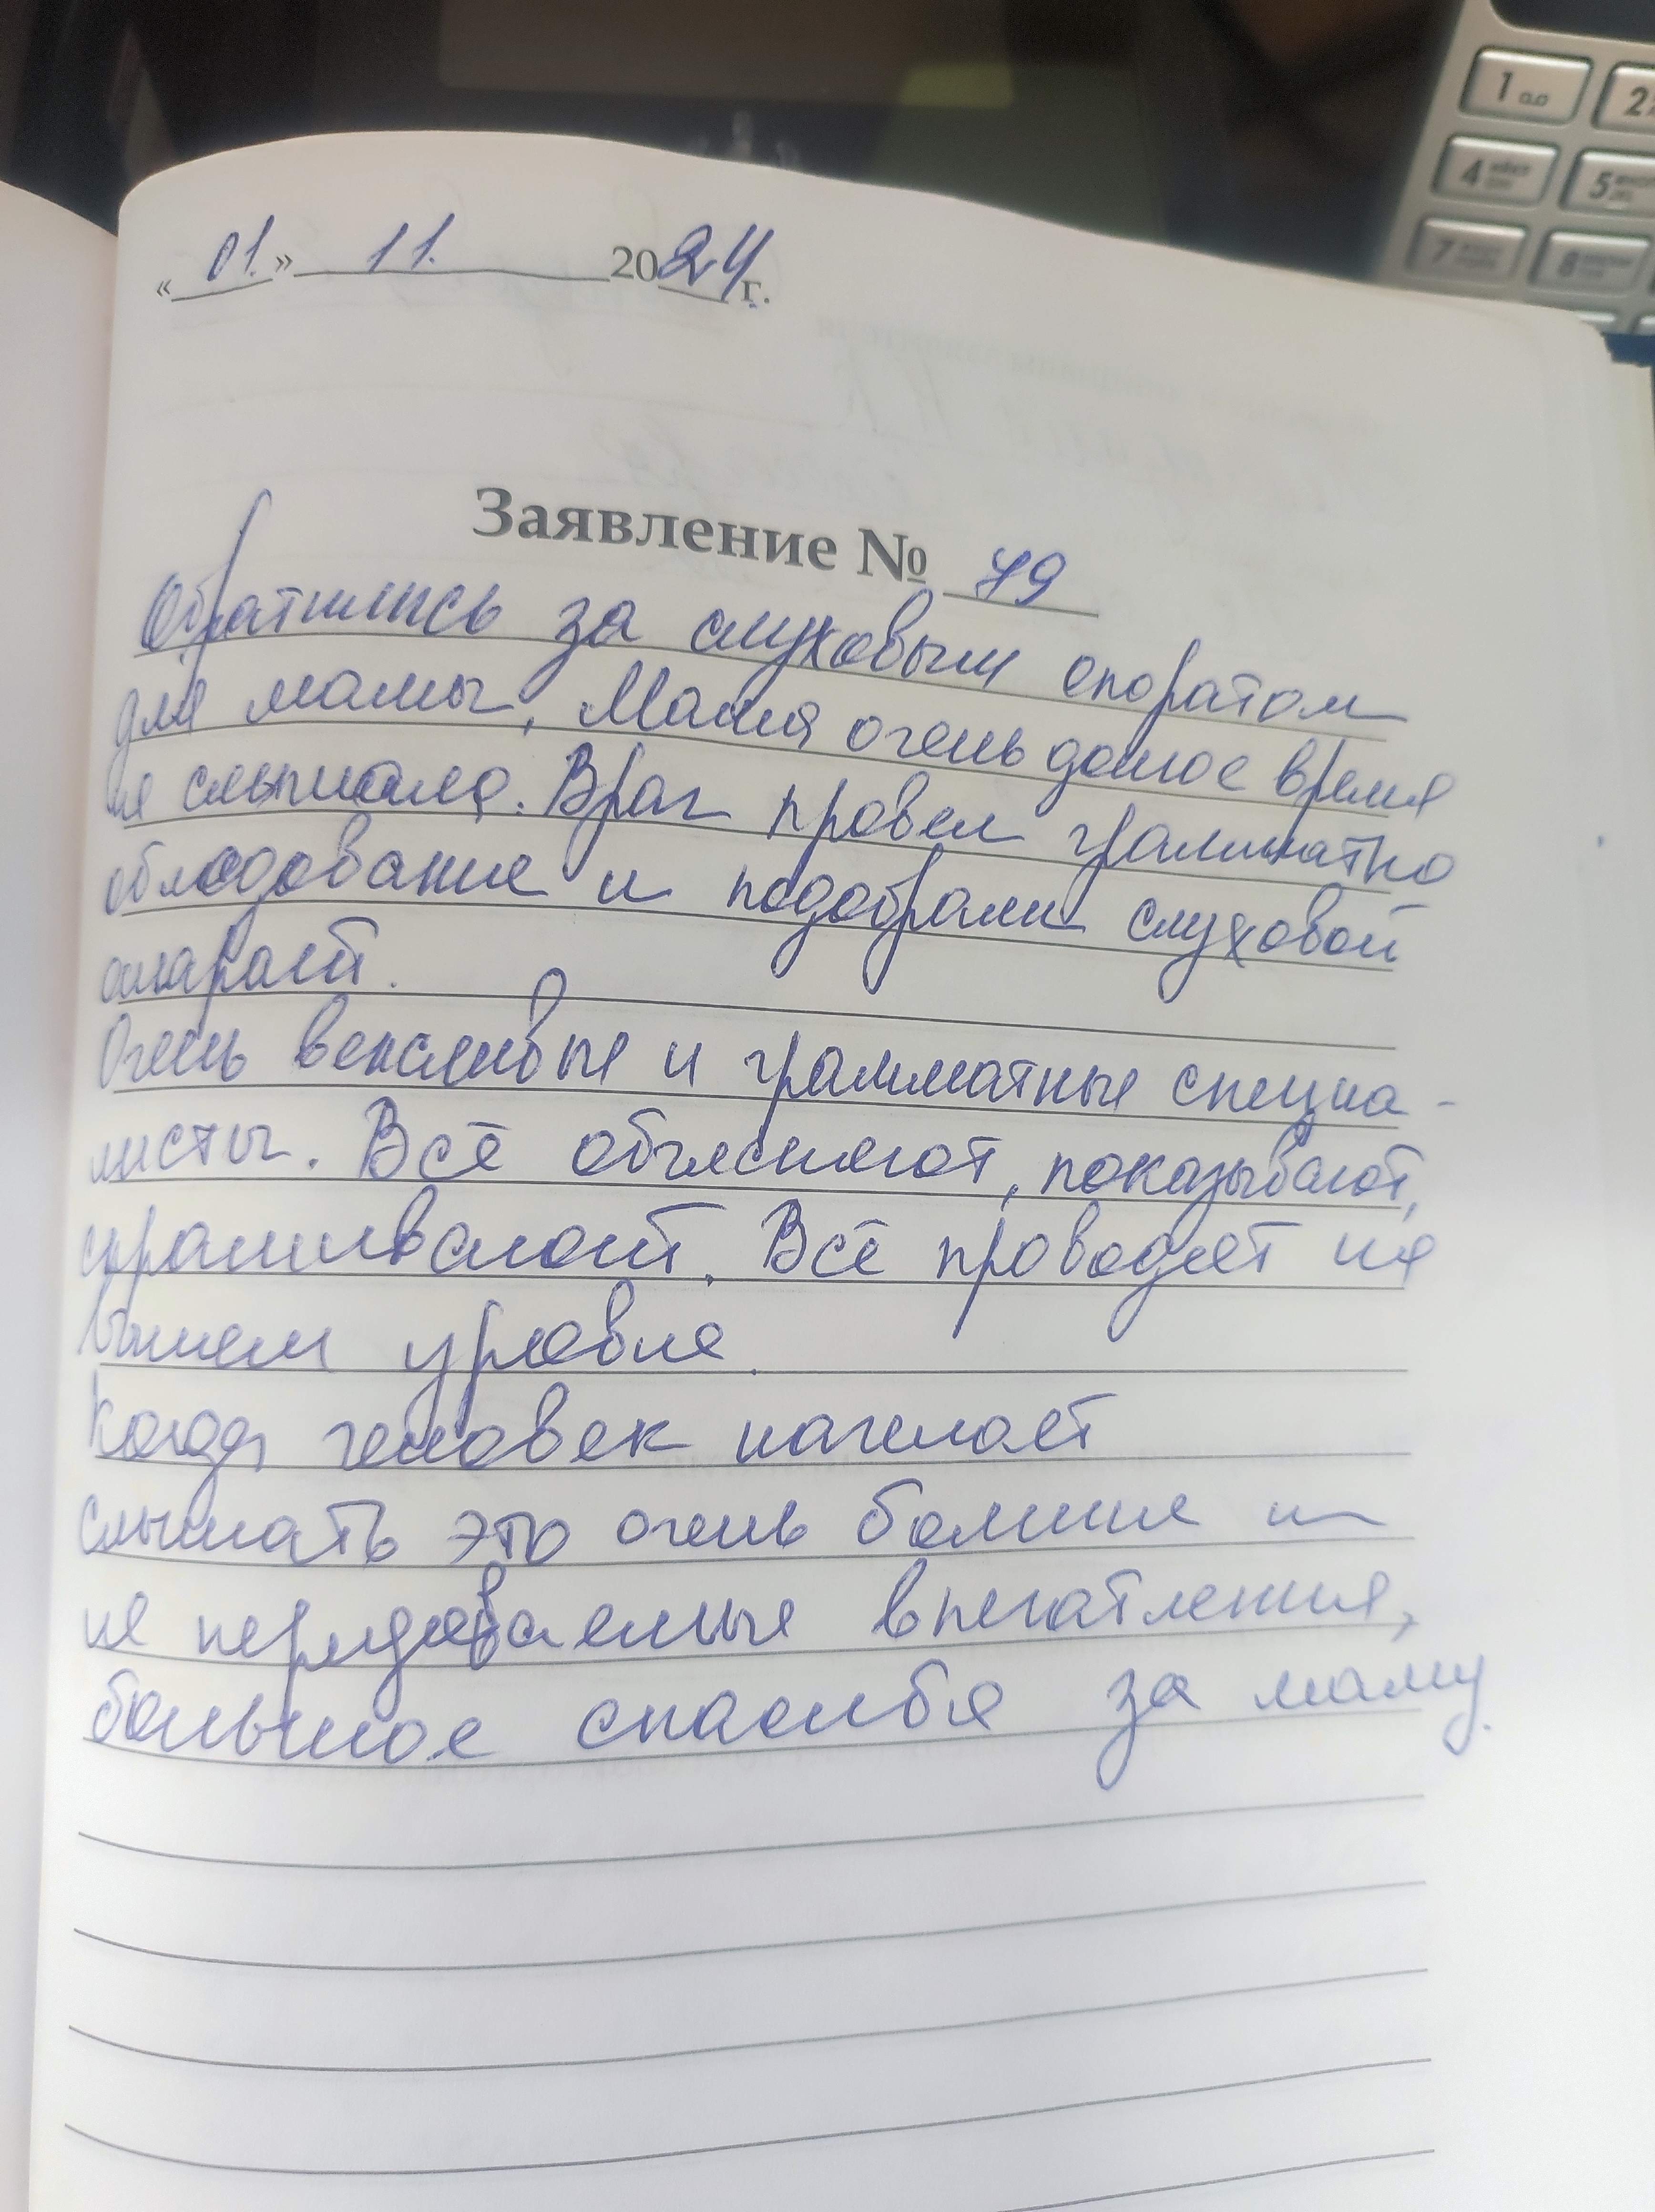 « 01. » 11. 2024 г.
Заявление № 79
Обратились за слуховым апоратом
для мамы, Мама очень долгое время
не слышала. Врач провел грамматно
обследование и подобрали слуховой
апарат.
Очень вежливые и грамматные специа-
листы. Всё объясняют, показывают,
спрашивают. Всё проводят на
вышем уровне.
Когда человек начинает
слышать это очень большие и
не передоваемые впечатления,
большое спасибо за маму.
1
2
4
5
7
8